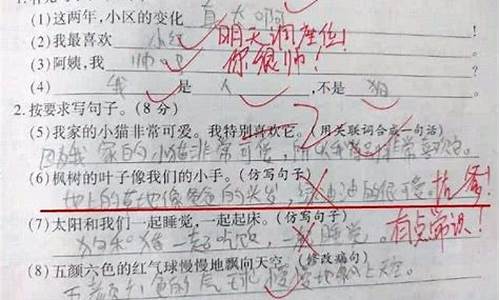 (1)这两年，小区的变化 真大啊
(2)我最喜欢 小红 明天调座位！
(3)阿姨，我 帅吧 你很帅！
(4) 我 是 人 ，不是 狗
2.按要求写句子。(8 分)
(5)我家的小猫非常可爱。我特别喜欢它。(用关联词合成一句话)
因为我家的小猫非常可爱，所以我 非常喜欢它。
(6)枫树的叶子像我们的小手。(仿写句子)
地上的草地像爸爸的头发，绿油油的很可爱。 找爹！
(7)太阳和我们一起睡觉，一起起床。(仿写句子)
狗和猪一起吃饭，一起睡觉。 有点常识！
(8)五颜六色的红气球慢慢地飘向天空。(修改病句)
五颜六色的气球慢慢地飘上天空。